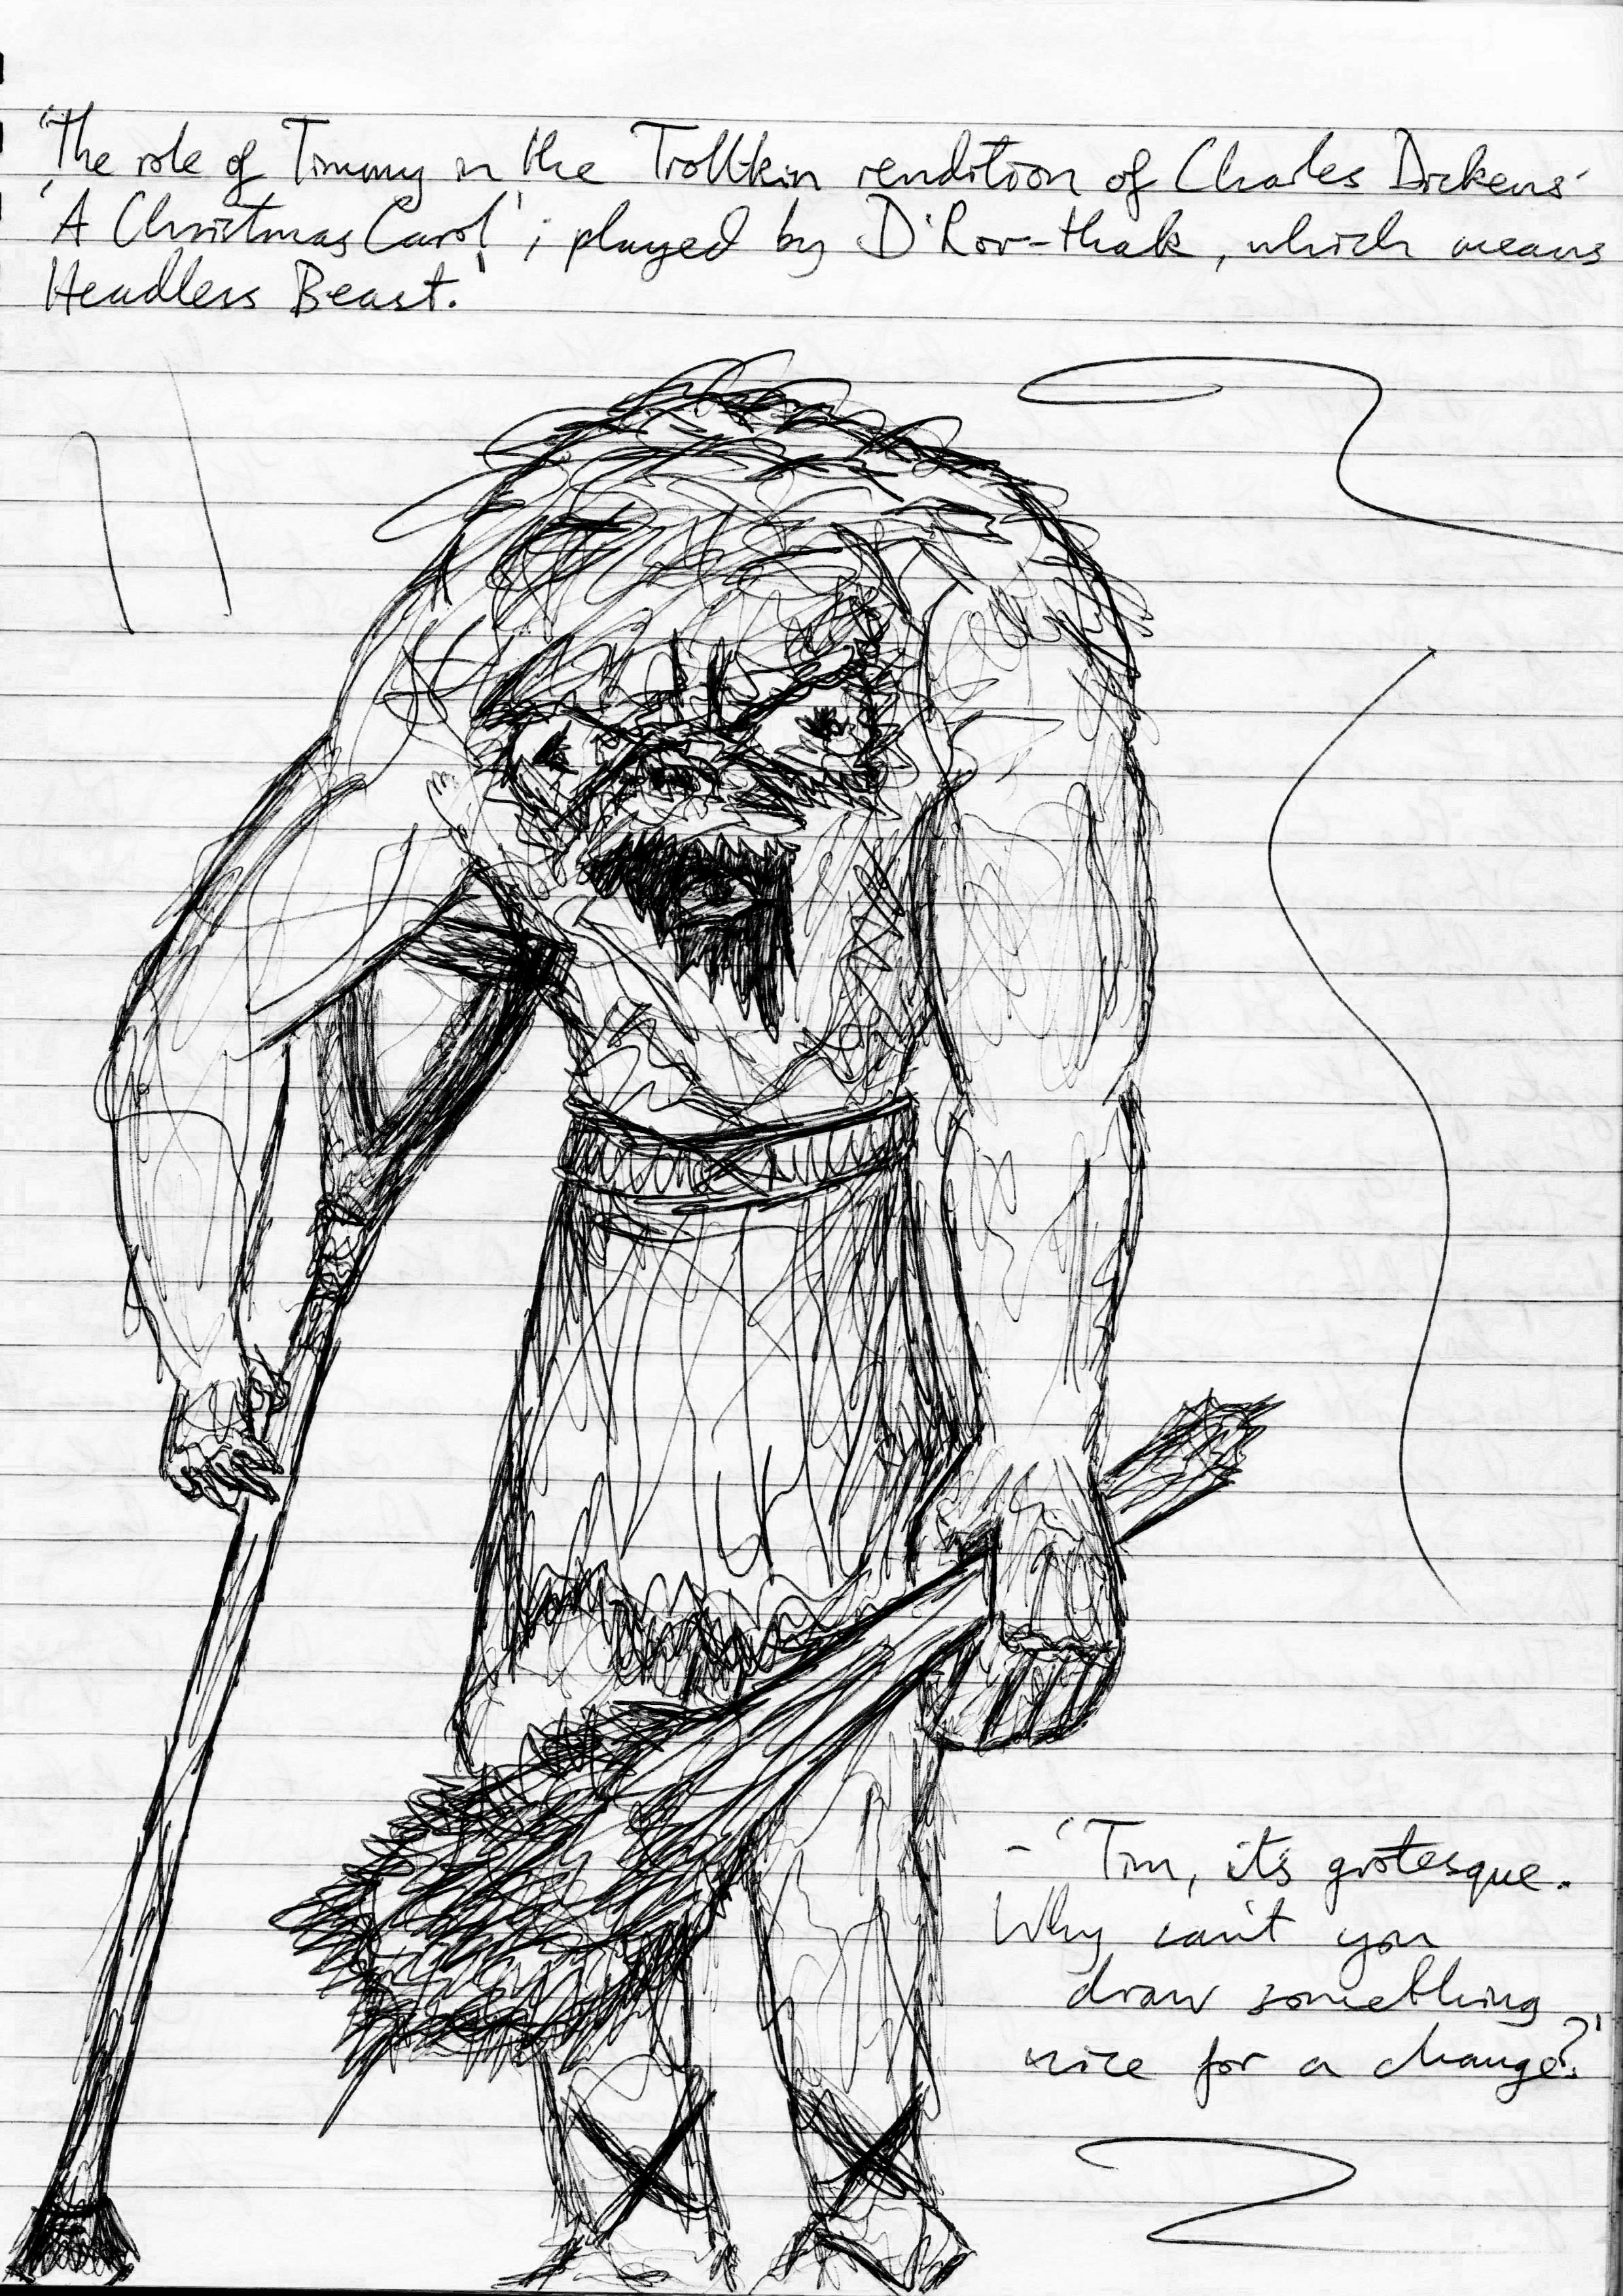 'The role of Timmy in the Trollkin rendition of Charles Dickens'
'A Christmas Carol'; played by D'Ror-thak, which means
Headless Beast.'
- 'Tim, it's grotesque.
Why can't you
draw something
nice for a change?'